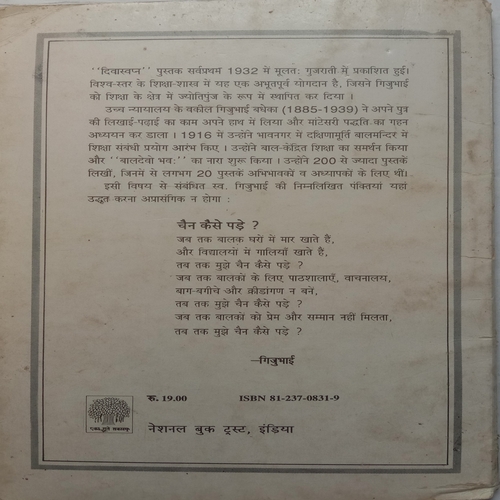 ''दिवास्वप्न'' पुस्तक सर्वप्रथम 1932 में मूलतः गुजराती में प्रकाशित हुई।
विश्व-स्तर के शिक्षा-शास्त्र में यह एक अभूतपूर्व योगदान है, जिसने गिजुभाई
को शिक्षा के क्षेत्र में ज्योतिपुंज के रूप में स्थापित कर दिया ।
उच्च न्यायालय के वकील गिजुभाई बधेका (1885-1939) ने अपने पुत्र
की लिखाई-पढ़ाई का काम अपने हाथ में लिया और मांटेसरी पद्धति का गहन
अध्ययन कर डाला । 1916 में उन्होंने भावनगर में दक्षिणामूर्ति बालमन्दिर में
शिक्षा संबंधी प्रयोग आरंभ किए । उन्होंने बाल-केंद्रित शिक्षा का समर्थन किया
और ''बालदेवो भवः'' का नारा शुरू किया । उन्होंने 200 से ज्यादा पुस्तकें
लिखीं, जिनमें से लगभग 20 पुस्तकें अभिभावकों व अध्यापकों के लिए थीं।
इसी विषय से संबंधित स्व. गिजुभाई की निम्नलिखित पंक्तियां यहां
उद्धृत करना अप्रासंगिक न होगा :
चैन कैसे पड़े ?
जब तक बालक घरों में मार खाते हैं,
और विद्यालयों में गालियाँ खाते हैं,
तब तक मुझे चैन कैसे पड़े ?
जब तक बालकों के लिए पाठशालाएँ, वाचनालय,
बाग-बगीचे और क्रीडांगण न बनें,
तब तक मुझे चैन कैसे पड़े ?
जब तक बालकों को प्रेम और सम्मान नहीं मिलता,
तब तक मुझे चैन कैसे पड़े ?
—गिजुभाई
रु. 19.00 ISBN 81-237-0831-9
नेशनल बुक ट्रस्ट, इंडिया